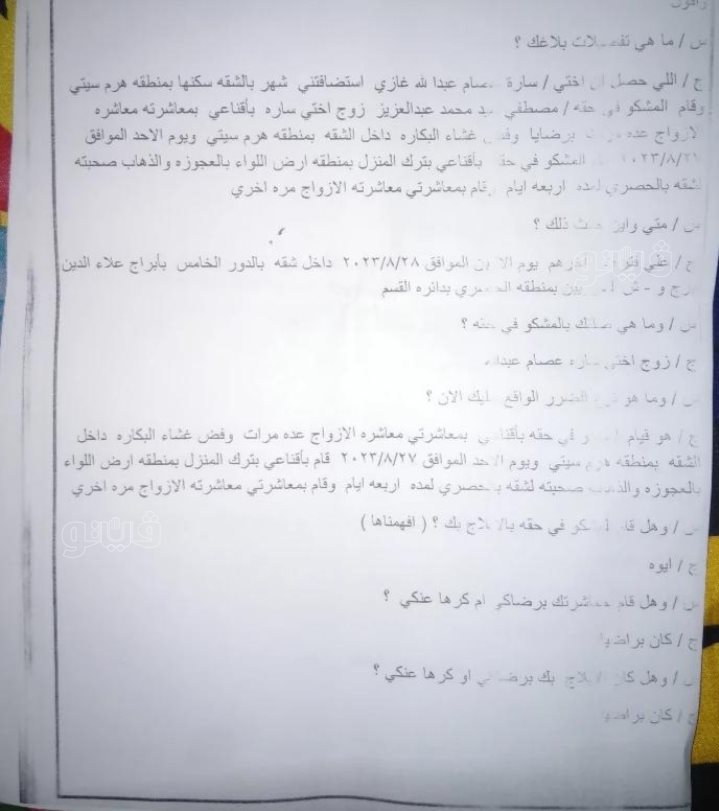 س / ما هي تفصيلات بلاغك ؟
ج / اللي حصل ان اختي / سارة عصام عبدا لله غازي استضافتني شهر بالشقه سكنها بمنطقه هرم سيتي
وقام المشكو في حقه / مصطفي محمد عبدالعزيز زوج اختي ساره بأقناعي بمعاشرته معاشره
لازواج عده مرات برضايا وفض غشاء البكاره داخل الشقه بمنطقه هرم سيتي ويوم الاحد الموافق
٢٠٢٣/٨/٢٧ المشكو في حقه بأقناعي بترك المنزل بمنطقه ارض اللواء بالعجوزه والذهاب صحبته
لشقه بالحصري لمده اربعه ايام وقام بمعاشرتي معاشرته الازواج مره اخري
س / متي واين حدث ذلك ؟
ج / علي فترات اخرهم يوم الاثنين الموافق ٢٠٢٣/٨/٢٨ داخل شقه بالدور الخامس بأبراج علاء الدين
برج و - ش بمنطقه الحصري بدائره القسم
س / وما هي صلتك بالمشكو في حقه ؟
ج / زوج اختي ساره عصام عبدالله
س / وما هو الضرر الواقع عليك الان ؟
ج / هو قيام المشكو في حقه بأقناعي بمعاشرتي معاشره الازواج عده مرات وفض غشاء البكاره داخل
الشقه بمنطقه هرم سيتي ويوم الاحد الموافق ٢٠٢٣/٨/٢٧ قام بأقناعي بترك المنزل بمنطقه ارض اللواء
بالعجوزه والذهاب صحبته لشقه بالحصري لمده اربعه ايام وقام بمعاشرتي معاشرته الازواج مره اخري
س / وهل قام المشكو في حقه بالايلاج بك ؟ ( افهمناها )
ج / ايوه
س / وهل قام بمعاشرتك برضاكي ام كرها عنكي ؟
ج / كان براضيا
س / وهل كان الايلاج بك برضاكي او كرها عنكي ؟
ج / كان براضيا
ڤيتو
ڤيتو